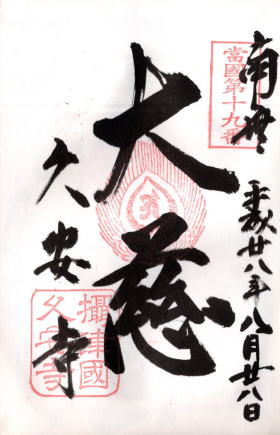 南無
當國第十九番
平成廿八年八月廿八日
大慈
久安寺
攝津國
久安寺